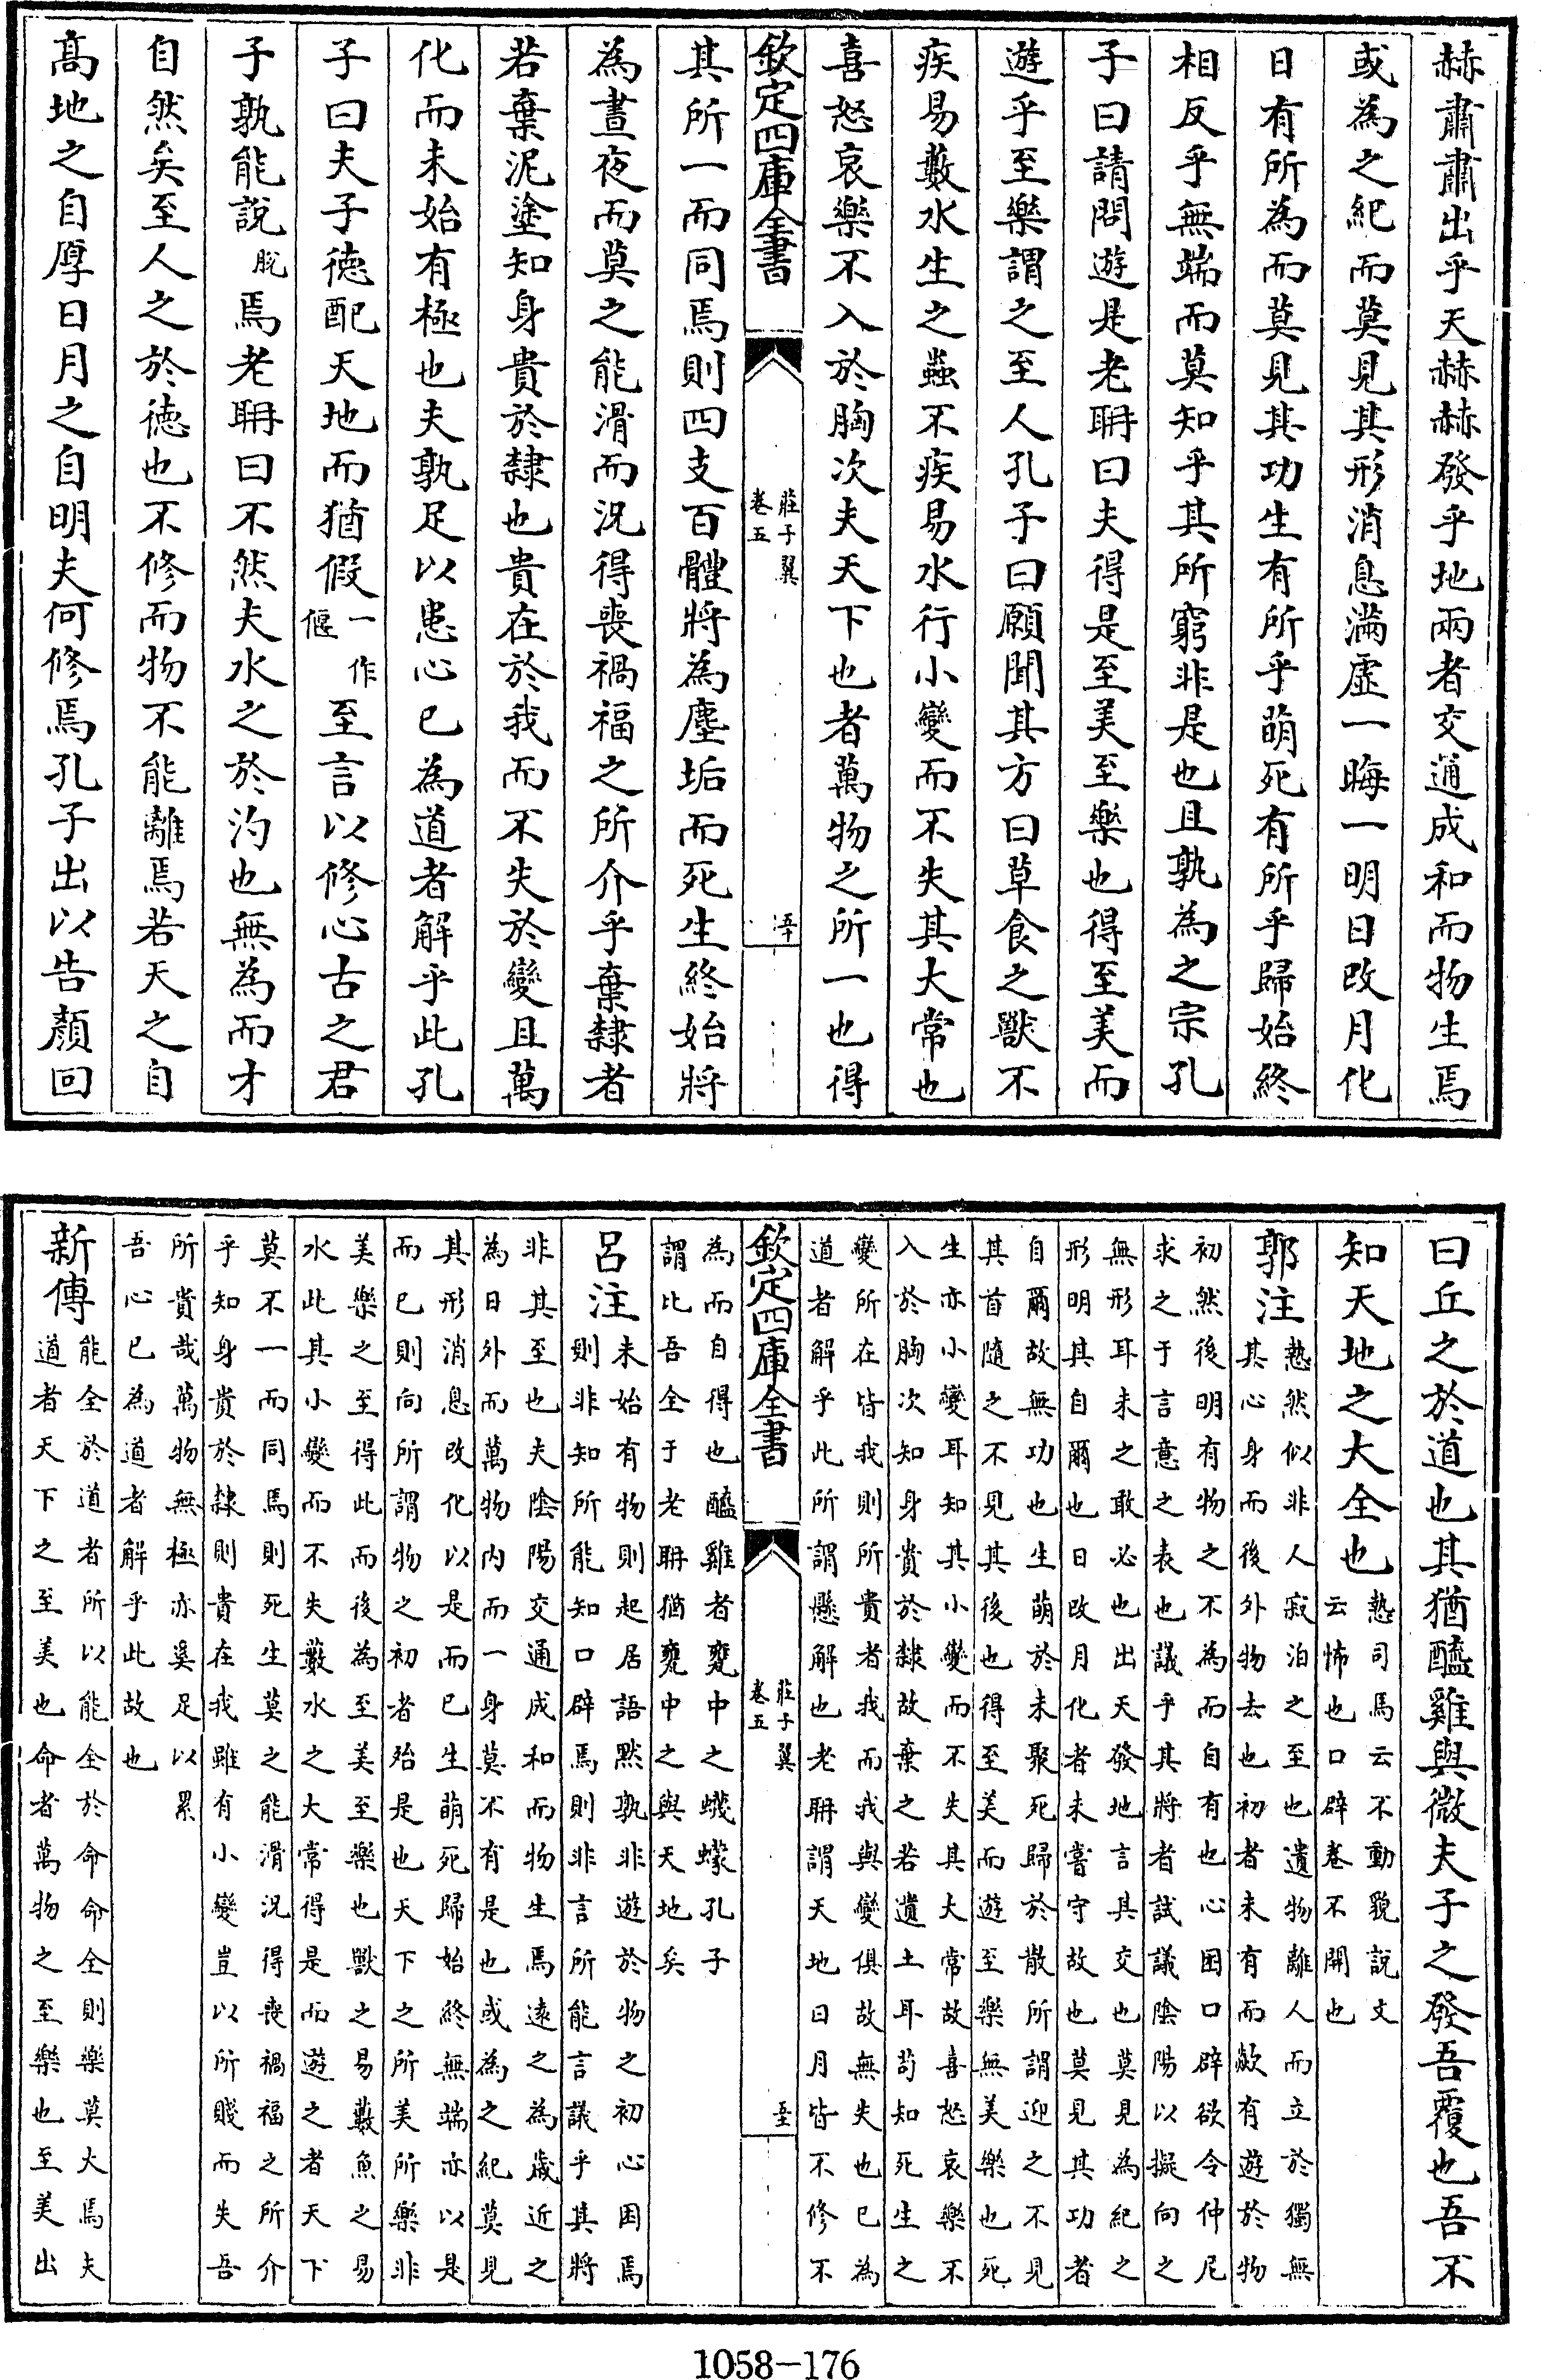 赫肅肅出乎天赫赫發乎地兩者交通成和而物生焉
或為之紀而莫見其形消息滿虛一晦一明日改月化
日有所為而莫見其功生有所乎萌死有所乎歸始終
相反乎無端而莫知乎其所窮非是也且孰為之宗孔
子曰請問遊是老聃曰夫得是至美至樂也得至美而
遊乎至樂謂之至人孔子曰願聞其方曰草食之獸不
疾易藪水生之蟲不疾易水行小變而不失其大常也
喜怒哀樂不入於胸次夫天下也者萬物之所一也得
欽定四庫全書
莊子翼
卷五
其所一而同焉則四支百體將為塵垢而死生終始將
為晝夜而莫之能滑而況得喪禍福之所介乎棄隸者
若棄泥塗知身貴於隸也貴在於我而不失於變且萬
化而未始有極也夫孰足以患心已為道者解乎此孔
子曰夫子德配天地而猶假一作偃至言以修心古之君
子孰能說脫焉老聃曰不然夫水之於汋也無為而才
自然矣至人之於德也不修而物不能離焉若天之自
高地之自厚日月之自明夫何修焉孔子出以告顏回
曰丘之於道也其猶醯雞與微夫子之發吾覆也吾不
知天地之大全也
慹司馬云不動貌說文
云怖也口辟卷不開也
郭注
慹然似非人寂泊之至也遺物離人而立於獨無
其心身而後外物去也初者未有而歘有遊於物
初然後明有物之不為而自有也心困口辟欲令仲尼
求之于言意之表也議乎其將者試議陰陽以擬向之
無形耳未之敢必也出天發地言其交也莫見為紀之
形明其自爾也日改月化者未嘗守故也莫見其功者
自爾故無功也生萌於未聚死歸於散所謂迎之不見
其首隨之不見其後也得至美而遊至樂無美樂也死
生亦小變耳知其小變而不失其大常故喜怒哀樂不
入於胸次知身貴於隸故棄之若遺土耳苟知死生之
變所在皆我則所貴者我而我與變俱故無失也已為
道者解乎此所謂懸解也老聃謂天地日月皆不修不
欽定四庫全書
莊子翼
卷五
為而自得也醯雞者甕中之蠛蠓孔子
謂比吾全于老聃猶甕中之與天地矣
呂注
未始有物則起居語默孰非遊於物之初心困焉
則非知所能知口辟焉則非言所能言議乎其將
非其至也夫陰陽交通成和而物生焉遠之為歲近之
為日外而萬物內而一身莫不有是也或為之紀莫見
其形消息改化以是而已生萌死歸始終無端亦以是
而已則向所謂物之初者殆是也天下之所美所樂非
美樂之至得此而後為至美至樂也獸之易藪魚之易
水此其小變而不失藪水之大常得是而遊之者天下
莫不一而同焉則死生莫之能滑況得喪禍福之所介
乎知身貴於隸則貴在我雖有小變豈以所賤而失吾
所貴哉萬物無極亦奚足以累
吾心已為道者解乎此故也
新傳
能全於道者所以能全於命命全則樂莫大焉夫
道者天下之至美也命者萬物之至樂也至美出
1058-176